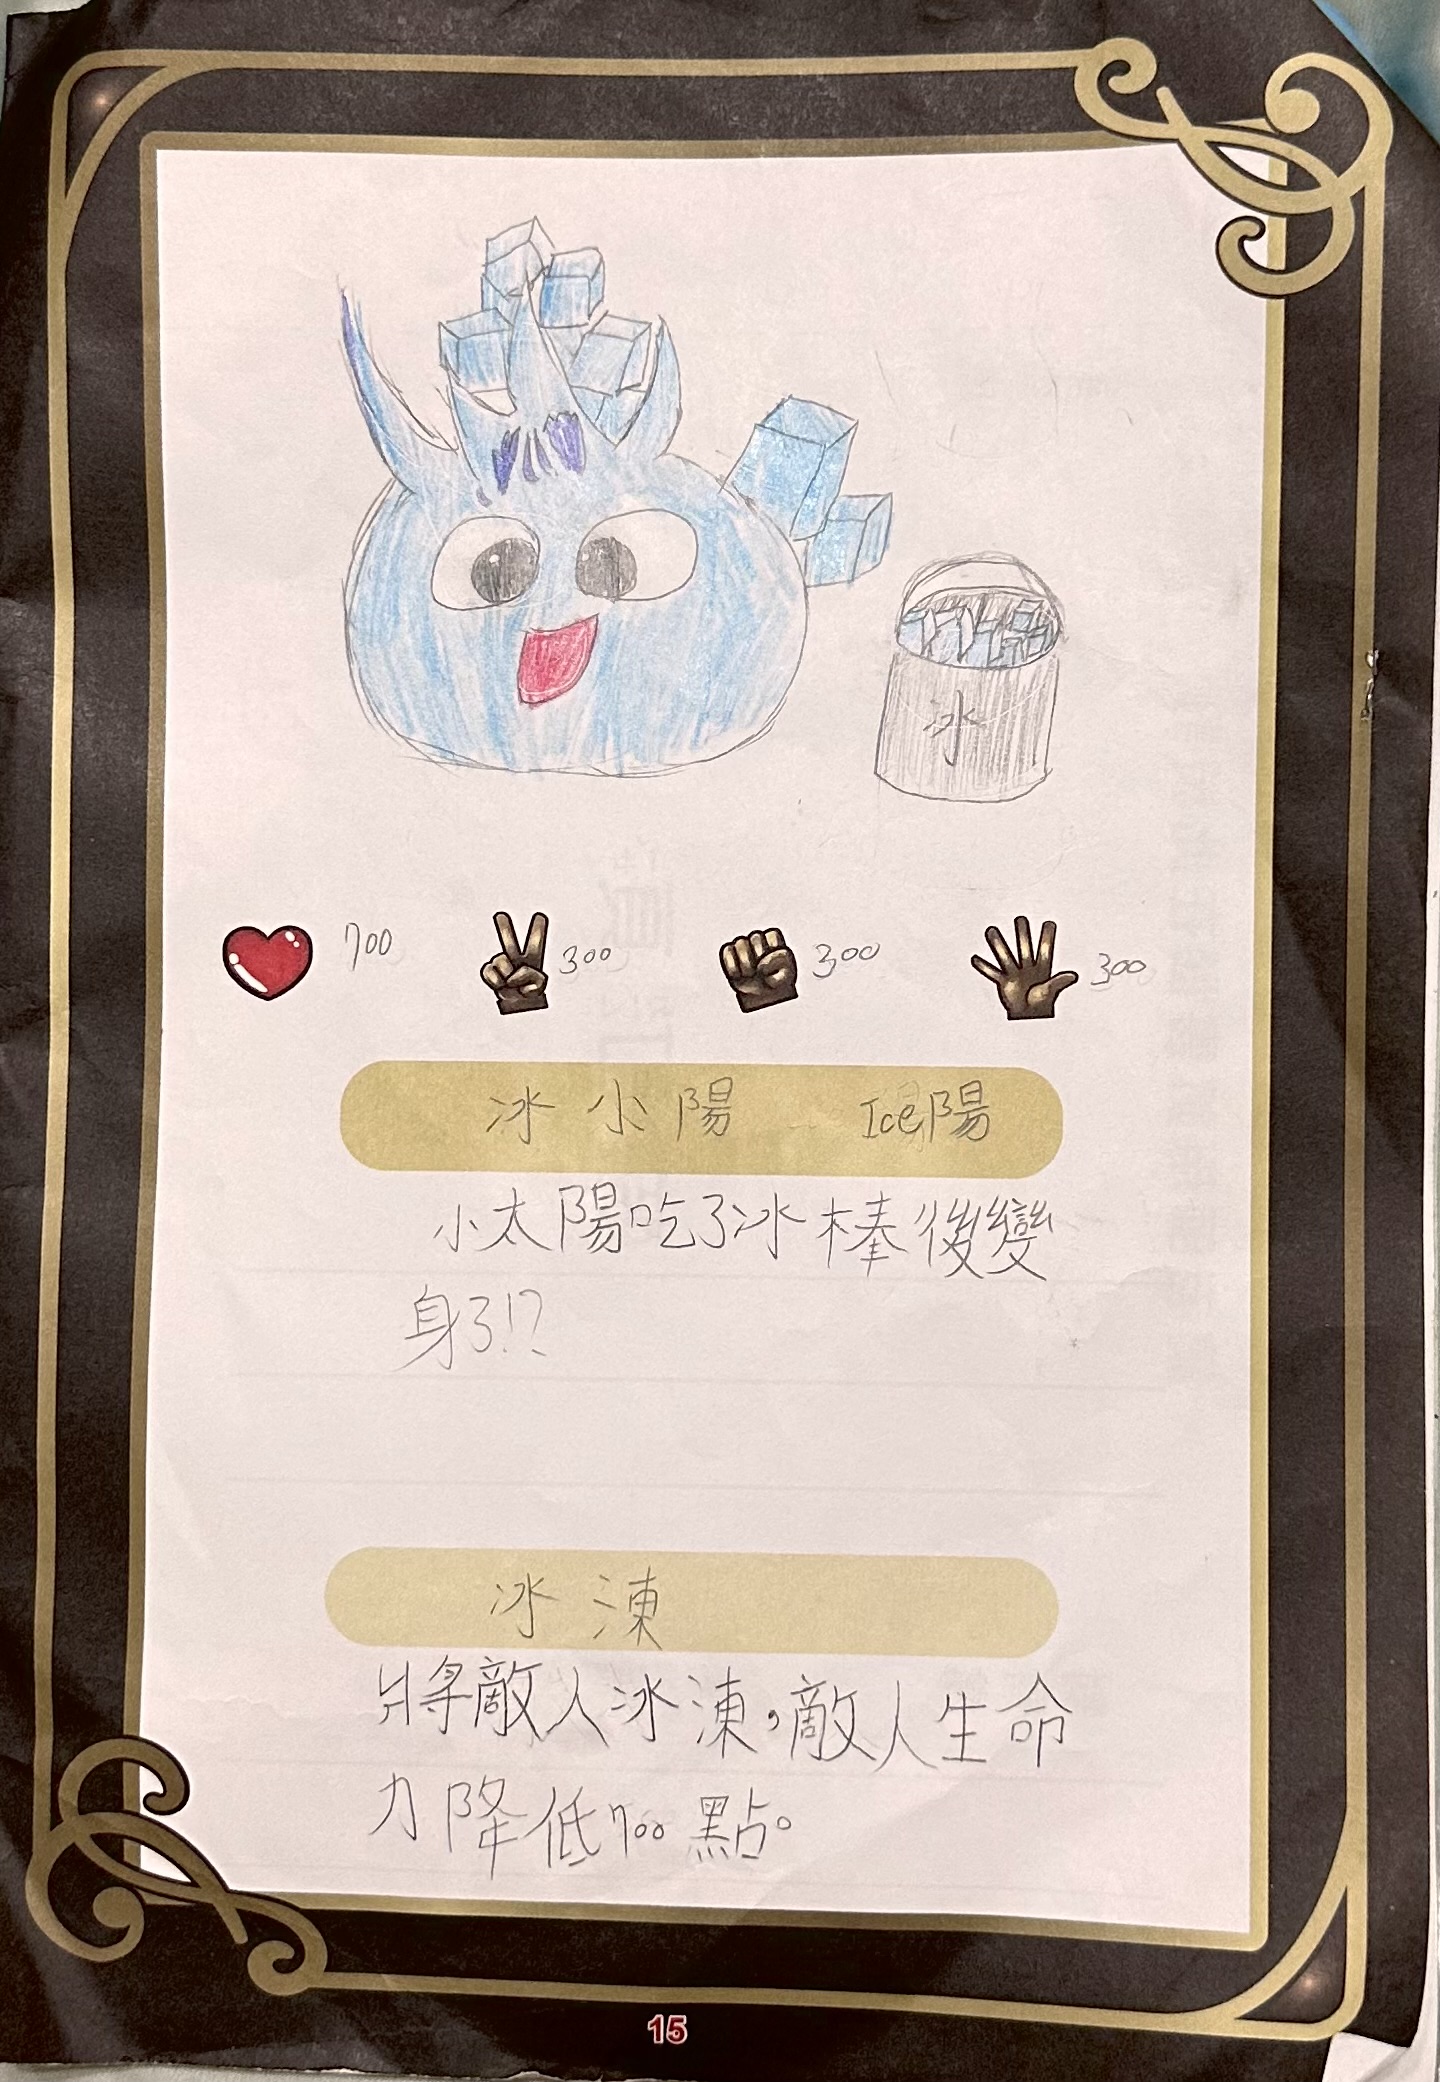 冰
700 300 300 300
冰小陽 Ice陽
小太陽吃了冰棒後變
身了!?
冰涷
將敵人冰涷,敵人生命
力降低700點。
15